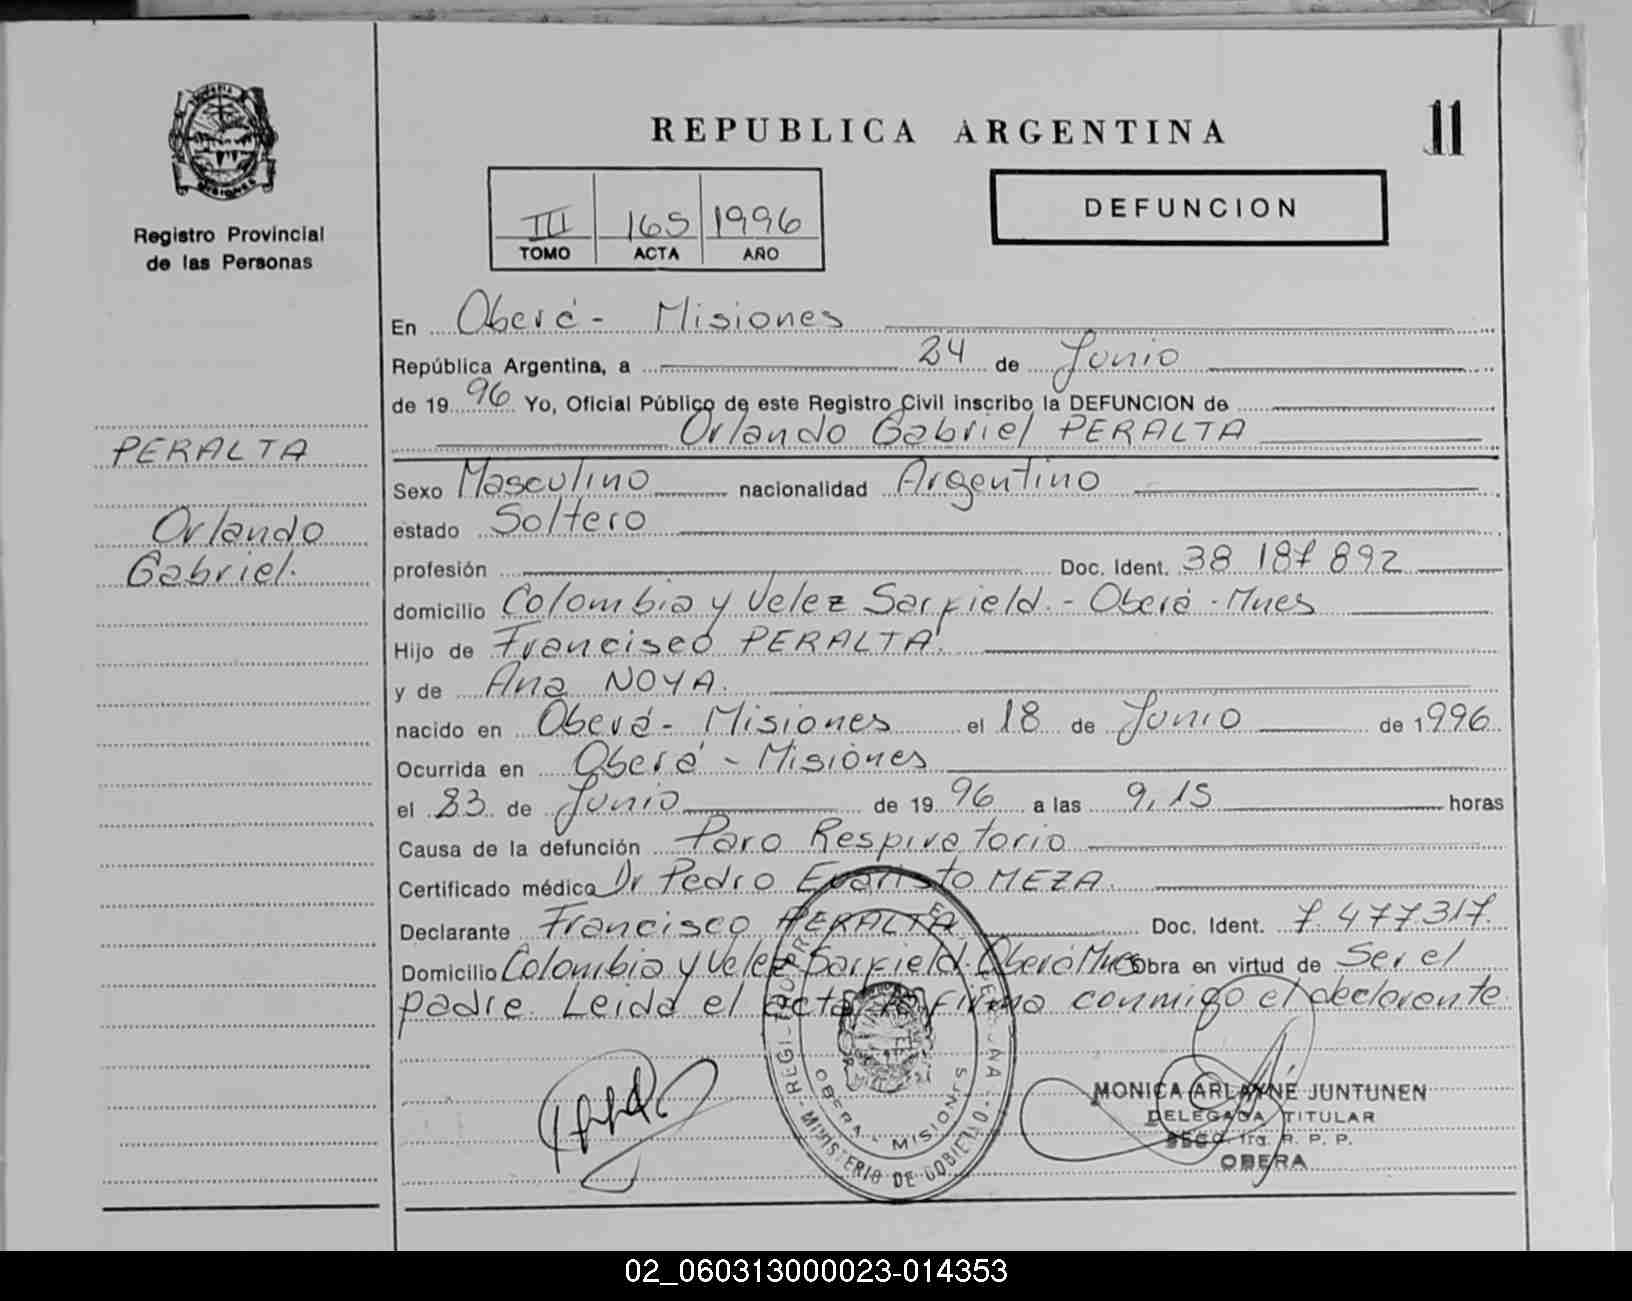 REPUBLICA ARGENTINA
11
Registro Provincial
de las Personas
III 165 1996
TOMO ACTA AÑO
DEFUNCION
En Oberá - Misiones
República Argentina, a 24 de Junio
de 1996 Yo, Oficial Público de este Registro Civil inscribo la DEFUNCION de
Orlando Gabriel PERALTA
PERALTA
Orlando
Gabriel.
Sexo Masculino nacionalidad Argentino
estado Soltero
profesión Doc. Ident. 38 187 892
domicilio Colombia y Velez Sarfield. - Oberá - Mnes
Hijo de Francisco PERALTA.
y de Ana NOYA.
nacido en Oberá - Misiones el 18 de Junio de 1996
Ocurrida en Oberá - Misiones
el 23 de Junio de 1996 a las 9,15 horas
Causa de la defunción Paro Respiratorio
Certificado médico Dr Pedro Evaristo MEZA.
Declarante Francisco PERALTA Doc. Ident. 7.477317.
Domicilio Colombia y Velez Sarfield. Oberá Mnes Obra en virtud de Ser el
padre. Leida el acta la firma conmigo el declarante.
MINISTERIO DE GOBIERNO
OBERA - MISIONES
MONICA ARLAYNE JUNTUNEN
DELEGADA TITULAR
1ra. R. P. P.
OBERA
02_060313000023-014353